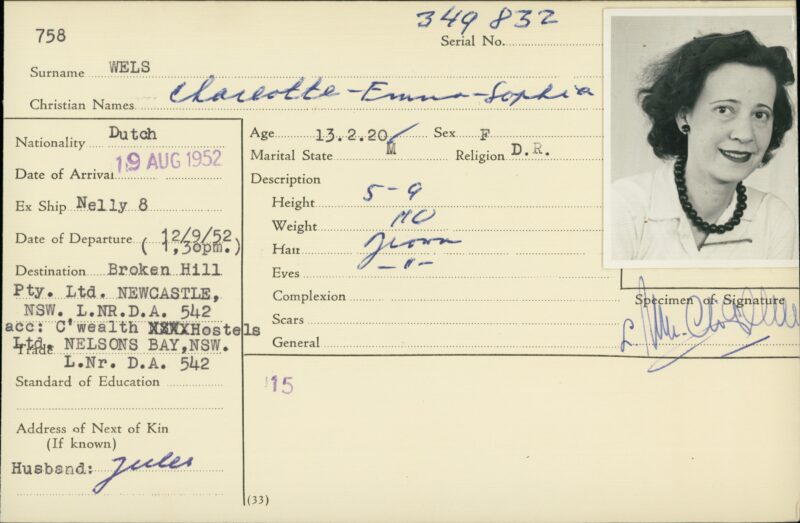 758
349 832
Serial No.
Surname WELS
Christian Names Charlotte-Emma-Sophia
Nationality Dutch
Date of Arrival 19 AUG 1952
Ex Ship Nelly 8
Date of Departure 12/9/52
( 1,30pm.)
Destination Broken Hill
Pty. Ltd. NEWCASTLE,
NSW. L.NR.D.A. 542
acc: C'wealth XXXXHostels
Trade Ltd. NELSONS BAY,NSW.
L.Nr. D.A. 542
Standard of Education
Address of Next of Kin
(If known)
Husband: Jules
Age 13.2.20 Sex F
Marital State M Religion D.R.
Description
Height 5-9
Weight 110
Hair brown
Eyes -"-
Complexion
Scars
General
Specimen of Signature
15
(33)